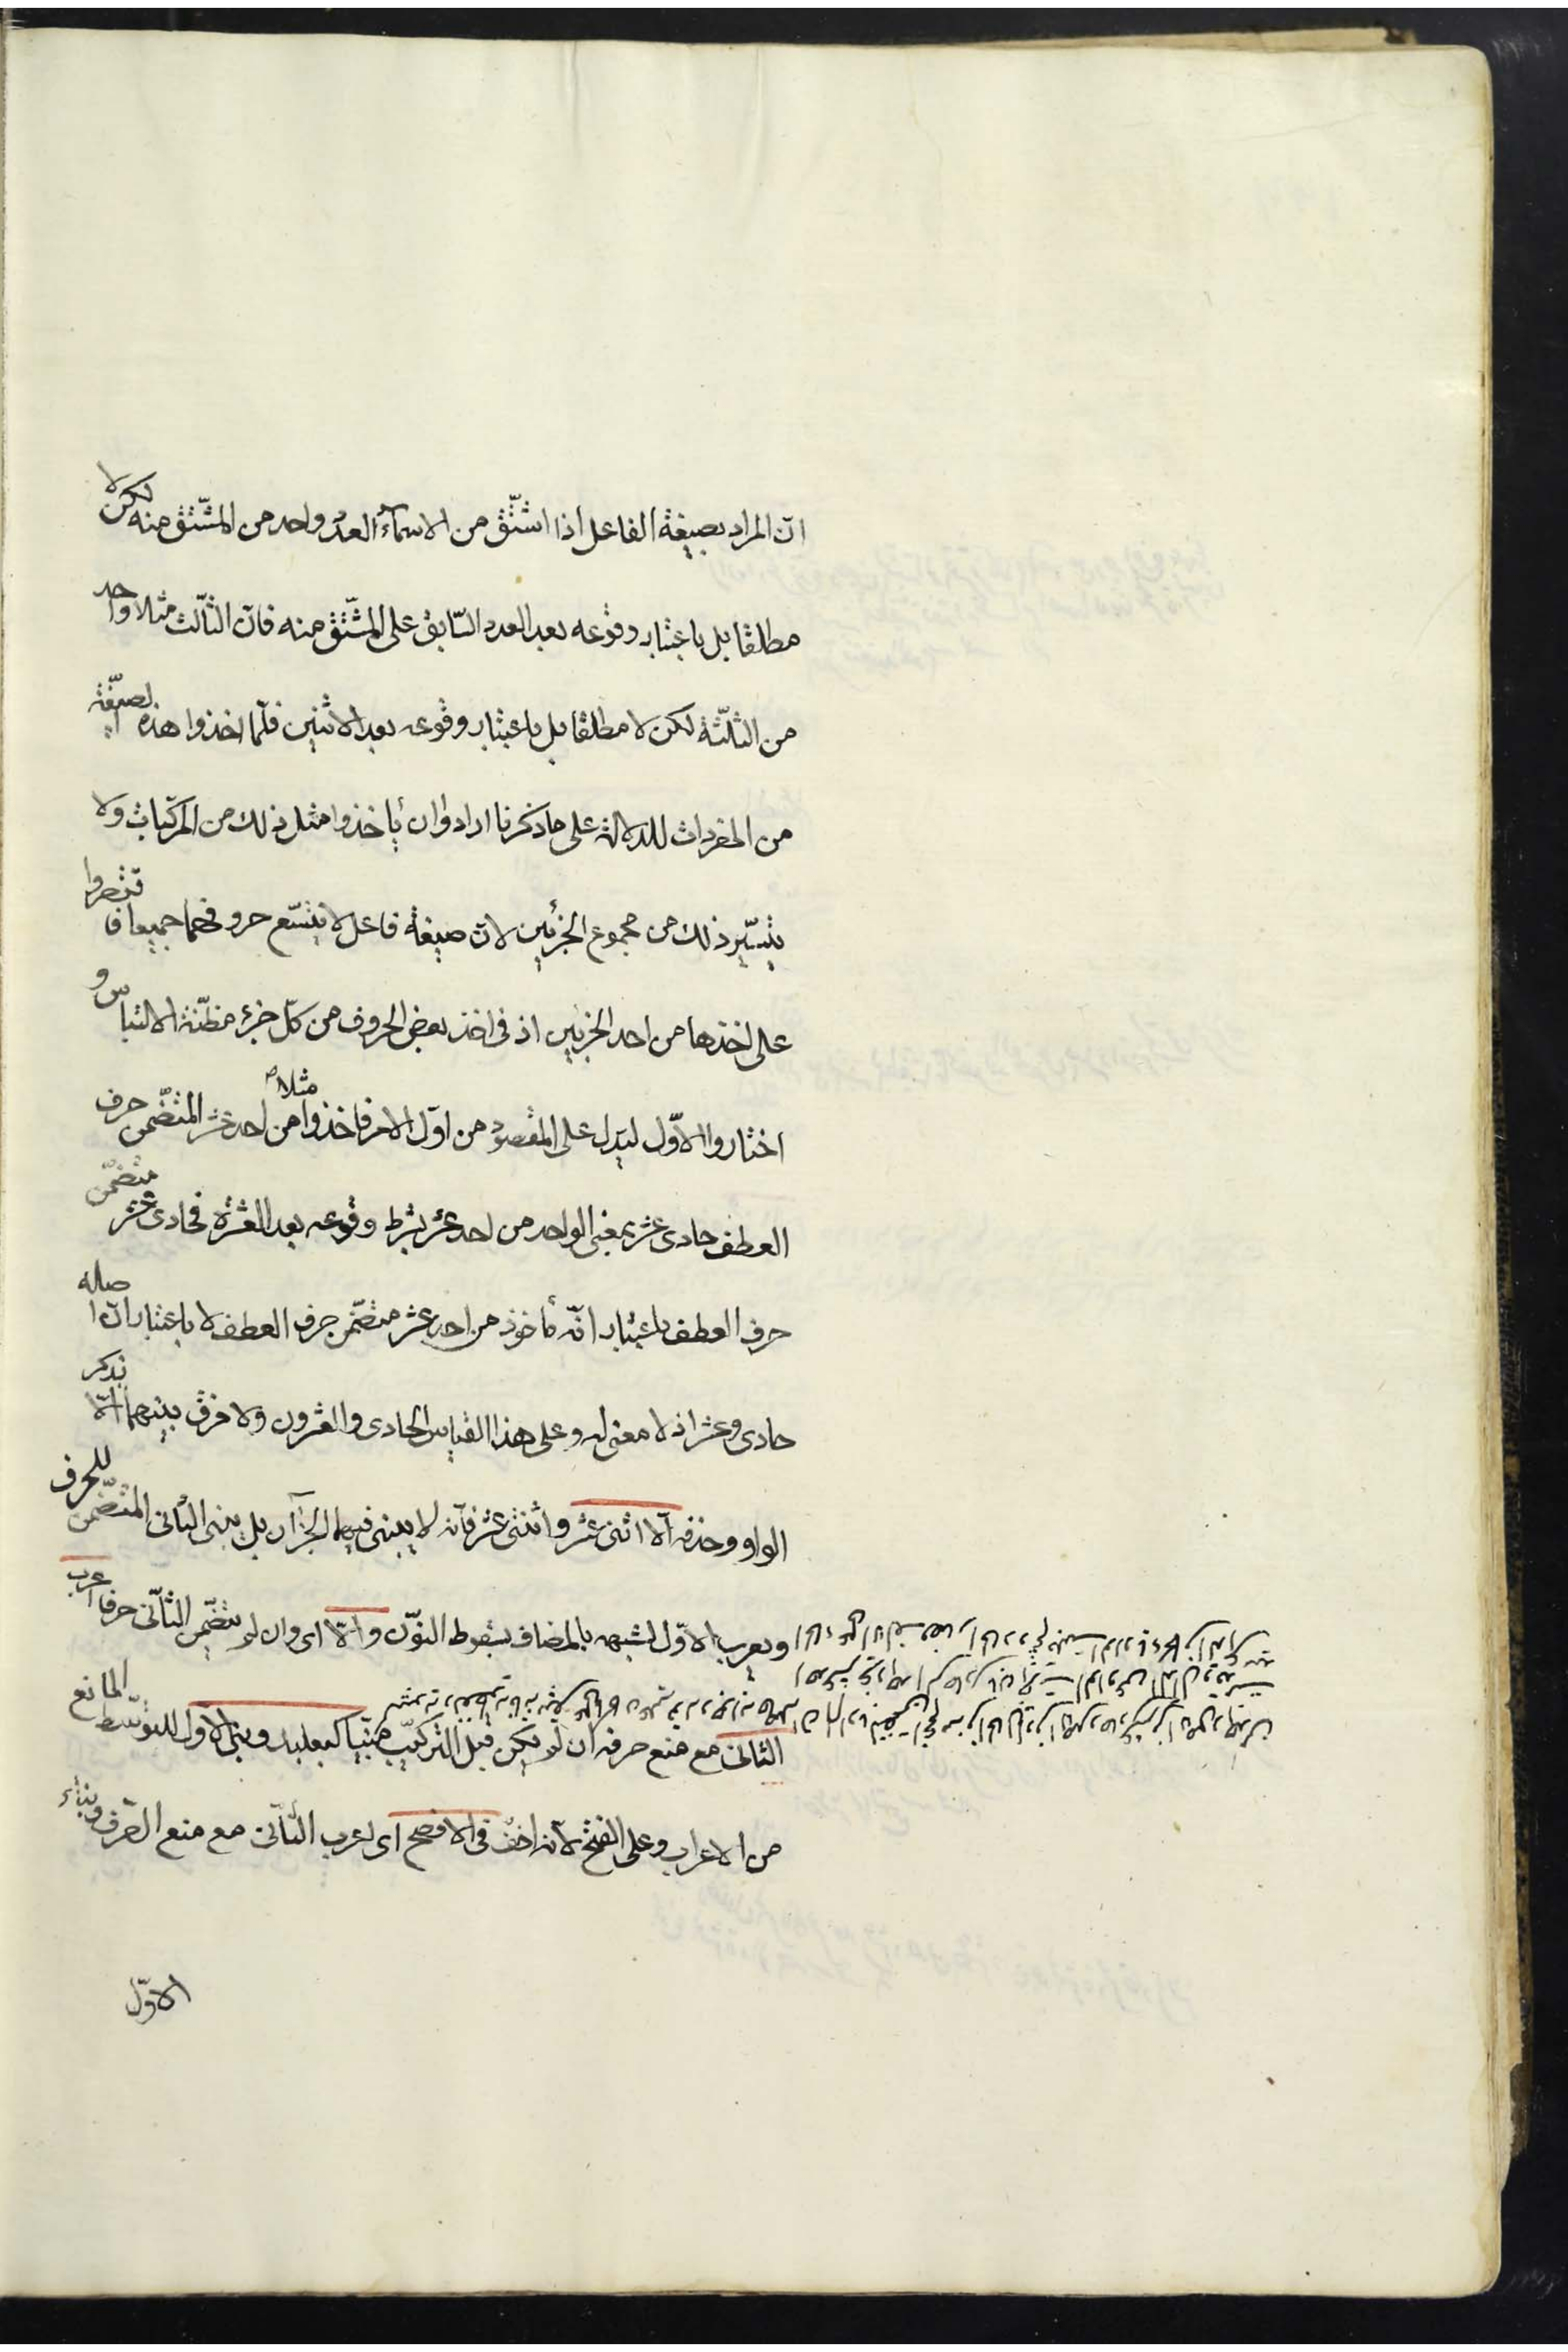 انّ المراد بصيغة الفاعل اذا اشتّق من الاسمآء العدد واحد من المشتّق منه لكن لا
مطلقا بل باعتبار وقوعه بعد العدد السّابق على المشتّق منه فانّ الثّالث مثلا واحد
من الثّلثة لكن لا مطلقا بل باعتبار وقوعه بعد الاثنين فلمّا اخذوا هذه الصيغة
من المفردات للدلالة على ما ذكرنا ارادوا ان يأخذوا مثل ذلك من المركّبات ولا
يتيسّر ذلك من مجموع الجزئين لانّ صيغة فاعل لا يتسّع حروفهما جميعا فاقتصروا
على اخذها من احد الجزئين اذ فى اخذ بعض الحروف من كلّ جزء مظنّة الالتباس و
اختاروا الاوّل ليدل على المقصود من اوّل الامر فاخذوا مثلا من احد عشر المتضّمن حرف
العطف حادى عشر بمعنى الواحد من احد عشر بشرط وقوعه بعد العشرة فحادى عشر متضمّن
حرف العطف باعتبار انّه مأخوذ من احد عشر متضمّن حرف العطف لا باعتبار انّ اصله
حادى وعشر اذ لا معنى له وعلى هذا القياس الحادى والعشرون ولا فرق بينهما الّا بذكر
الواو وحذفه الّا اثنى عشر واثنتى عشر فانّه لا يبنى فيهما الجزآن بل يبنى الثّانى المتضّمن للحرف
ويعرب الاوّل لشبهه بالمضاف بسقوط النّون والّا اى وان لم يتضّمن الثّانى حرفا اعرب
الثّانى مع منع صرفه ان لم يكن قبل التركيب مبنيّا كبعلبك وبنى الاوّل للتوسّط المانع
من الاعراب وعلى الفتح لانّه اخفّ فى الافصح اى اعرب الثّانى مع منع الصّرف وبناء
الاوّل